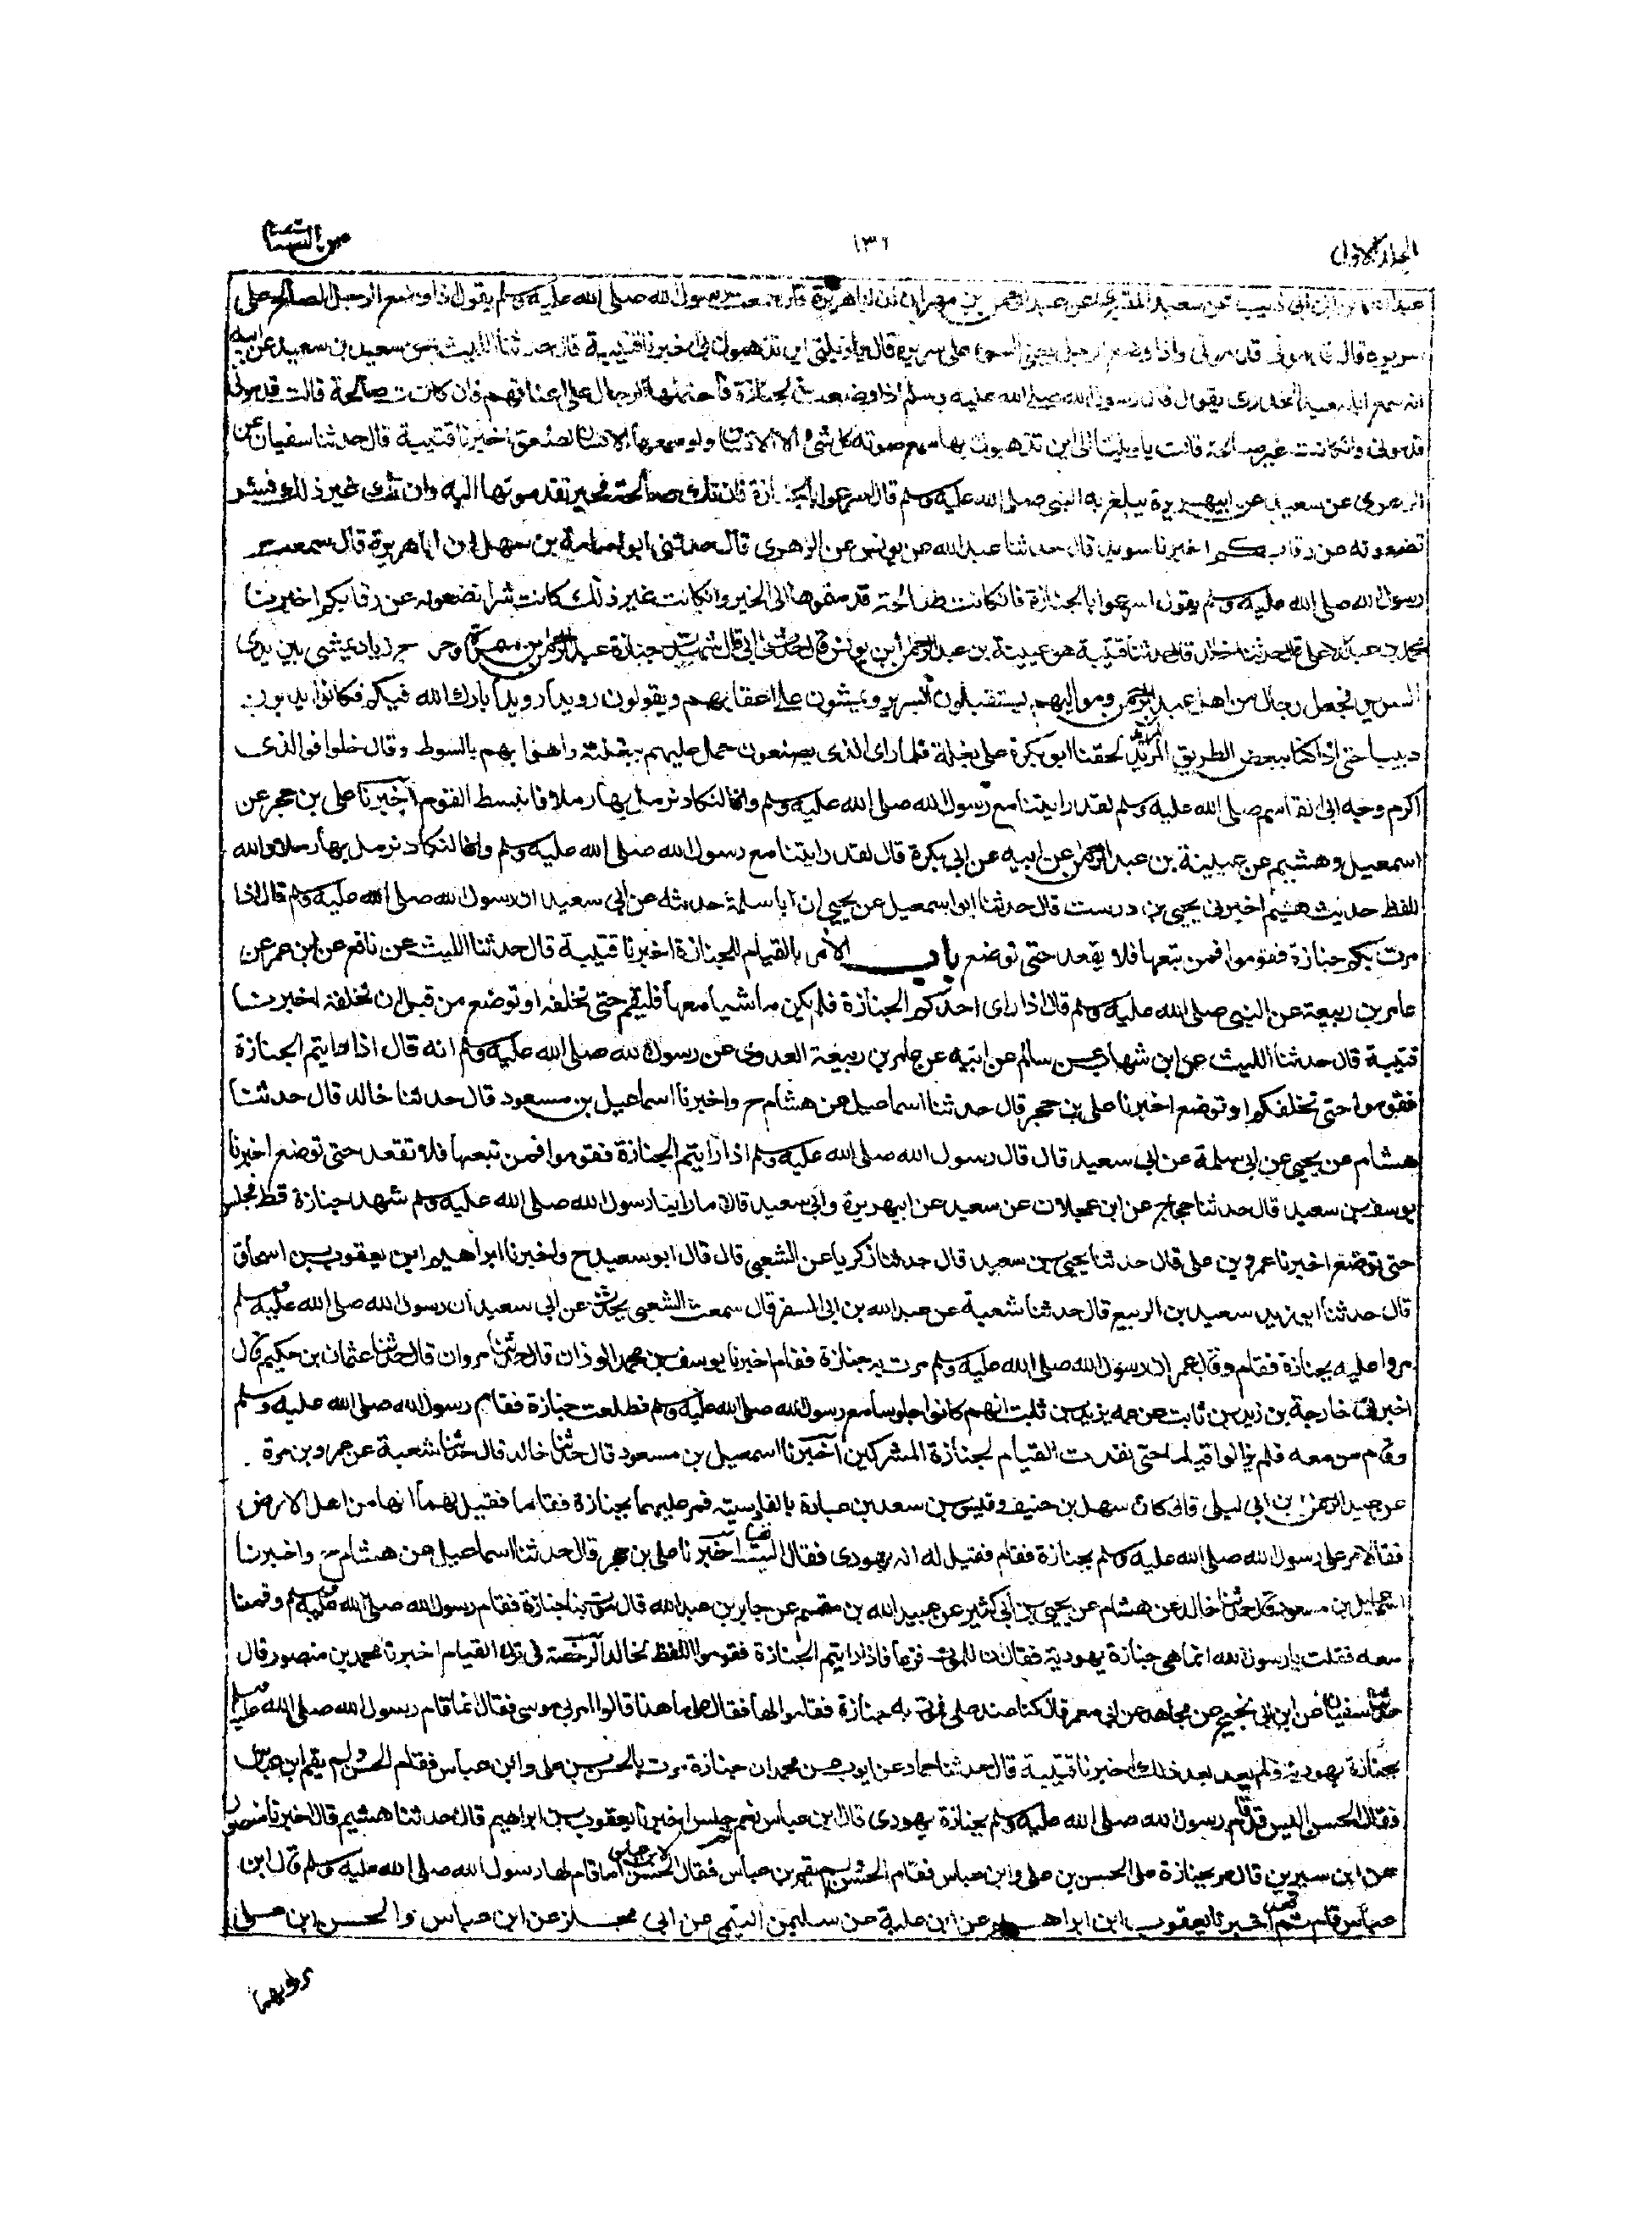 الجلد الاول
١٣٦
من النسائى
عبد الله عن ابن ابى ذئب عن سعيد المقبرى عن عبد الرحمن بن مهران ان اباهريرة قال سمعت رسول الله صلى الله عليه وسلم يقول اذا وضع الرجل الصالح على
سريره قال قدمونى قدمونى واذا وضع الرجل يعنى السوء على سريره قال ياويلتى اين تذهبون بى اخبرنا قتيبة قال حدثنا الليث عن سعيد بن سعيد عن ابيه
انه سمع ابا سعيد الخدرى يقول قال رسول الله صلى الله عليه وسلم اذا وضعت الجنازة فاحتملها الرجال على اعناقهم فان كانت صالحة قالت قدمونى
قدمونى وانكانت غير صالحة قالت ياويلتا الى اين تذهبون بها يسمع صوتها كل شئ الا الانسان ولو سمعها الانسان لصعق اخبرنا قتيبة قال حدثنا سفيان عن
الزهرى عن سعيد عن ابيهريرة يبلغ به النبى صلى الله عليه وسلم قال اسرعوا بالجنازة فان تك صالحة فخير تقدموتها اليه وان تك غير ذلك فشر
تضعونه من رقابكم اخبرنا سويد قال حدثنا عبد الله عن يونس عن الزهرى قال حدثنى ابوامامة بن سهل ان اباهريرة قال سمعت
رسول الله صلى الله عليه وسلم يقول اسرعوا بالجنازة فانكانت صالحة قدمتموها الى الخير وانكانت غير ذلك كانت شرا تضعونه عن رقابكم اخبرنا
محمد بن عبد الاعلى قال حدثنا خالد قال حدثنا عيينة بن عبد الرحمن ابن يونس قال حدثنى ابى قال شهدت جنازة عبد الرحمن بن سمرة وخرج زياد يمشى بين يدى
السرير فجعل رجال من اهل عبد الرحمن ومواليهم يستقبلون السرير ويمشون على اعقابهم ويقولون رويدا رويدا بارك الله فيكم فكانوا يدبون
دبيبا حتى اذا كنا ببعض الطريق المربد لحقنا ابو بكرة على بغلة فلما راى الذى يصنعون حمل عليهم ببغلته واهوا بهم بالسوط وقال خلوا فوالذى
اكرم وجه ابى القاسم صلى الله عليه وسلم لقد رايتنا مع رسول الله صلى الله عليه وسلم وانا لنكاد نرمل بها رملا فانبسط القوم اخبرنا على بن حجر عن
اسمعيل وهشيم عن عيينة بن عبد الرحمن عن ابيه عن ابى بكرة قال لقد رايتنا مع رسول الله صلى الله عليه وسلم وانا لنكاد نرمل بها رملا والله
للفظ حديث هشيم اخبرنى يحيى بن درست قال حدثنا ابو اسمعيل عن يحيى ان ابا سلمة حدثه عن ابى سعيد ان رسول الله صلى الله عليه وسلم قال اذا
مرت بكم جنازة فقوموا فمن تبعها فلا يقعد حتى توضع باب الامر بالقيام للجنازة اخبرنا قتيبة قال حدثنا الليث عن نافع عن ابن عمر عن
عامر بن ربيعة عن النبى صلى الله عليه وسلم قال اذا راى احدكم الجنازة فلم يكن ماشيا معها فليقم حتى تخلفه او توضع من قبل ان تخلفه اخبرنا
قتيبة قال حدثنا الليث عن ابن شهاب عن سالم عن ابيه عن عامر بن ربيعة العدوى عن رسول الله صلى الله عليه وسلم انه قال اذا رايتم الجنازة
فقوموا حتى تخلفكم او توضع اخبرنا على بن حجر قال حدثنا اسماعيل عن هشام ح واخبرنا اسماعيل بن مسعود قال حدثنا خالد قال حدثنا
هشام عن يحيى عن ابى سلمة عن ابى سعيد قال قال رسول الله صلى الله عليه وسلم اذا رايتم الجنازة فقوموا فمن تبعها فلا تقعد حتى توضع اخبرنا
يوسف بن سعيد قال حدثنا حجاج عن ابن عجلان عن سعيد عن ابيهريرة وابى سعيد قالا ما راينا رسول الله صلى الله عليه وسلم شهد جنازة قط فجلس
حتى توضع اخبرنا عمرو بن على قال حدثنا يحيى بن سعيد قال حدثنا زكريا عن الشعبى قال قال ابو سعيد ح واخبرنا ابراهيم ابن يعقوب بن اسحاق
قال حدثنا ابو زيد سعيد بن الربيع قال حدثنا شعبة عن عبد الله بن ابى السفر قال سمعت الشعبى يحدث عن ابى سعيد ان رسول الله صلى الله عليه وسلم
مروا عليه بجنازة فقام وقال عمر ان رسول الله صلى الله عليه وسلم مرت به جنازة فقام اخبرنا يوسف بن محمد الوذان قال حدثنا مروان قال حدثنا عثمان بن حكيم قال
اخبرنى خارجة بن زيد بن ثابت عن عمه يزيد بن ثابت انهم كانوا جلوسا مع رسول الله صلى الله عليه وسلم فطلعت جنازة فقام رسول الله صلى الله عليه وسلم
وقام من معه فلم يزالوا قياما حتى نفدت القيام لجنازة المشركين اخبرنا اسمعيل بن مسعود قال حدثنا خالد قال حدثنا شعبة عن عمرو بن مرة
عن عبد الرحمن بن ابى ليلى قال كان سهل بن حنيف وقيس بن سعد بن عبادة بالقادسية فمر عليهما بجنازة فقاما فقيل لهما انها من اهل الارض
فقالا مر على رسول الله صلى الله عليه وسلم بجنازة فقام فقيل له انه يهودى فقال اليست نفسا اخبرنا على بن حجر قال حدثنا اسماعيل عن هشام ح واخبرنا
اسمعيل بن مسعود قال حدثنا خالد عن هشام عن يحيى بن ابى كثير عن عبيد الله بن مقسم عن جابر بن عبد الله قال مرت بنا جنازة فقام رسول الله صلى الله عليه وسلم وقمنا
معه فقلت يا رسول الله انما هى جنازة يهودية فقال ان للموت فزعا فاذا رايتم الجنازة فقوموا اللفظ لخالد الرخصة فى ترك القيام اخبرنا محمد بن منصور قال
حدثنا سفيان عن ابن ابى نجيح عن مجاهد عن ابى معمر قال كنا عند على فمرت به جنازة فقاموا لها فقال على ما هذا قالوا امر ابى موسى فقال انما قام رسول الله صلى الله عليه وسلم
بجنازة يهودية ولم يعد بعد ذلك اخبرنا قتيبة قال حدثنا حماد عن ايوب عن محمد ان جنازة مرت بالحسن بن على وابن عباس فقام الحسن ولم يقم ابن عباس
فقال الحسن اليس قد قام رسول الله صلى الله عليه وسلم بجنازة يهودى قال ابن عباس نعم جلس اخبرنا يعقوب بن ابراهيم قال حدثنا هشيم قال اخبرنا منصور
عن ابن سيرين قال مر بجنازة على الحسن بن على وابن عباس فقام الحسن ولم يقم ابن عباس فقال الحسن لابن عباس اما قام لها رسول الله صلى الله عليه وسلم قال ابن
عباس قام ثم قعد اخبرنا يعقوب ابن ابراهيم عن ابن علية عن سليمن التيمى عن ابى مجلز عن ابن عباس والحسن ابن على